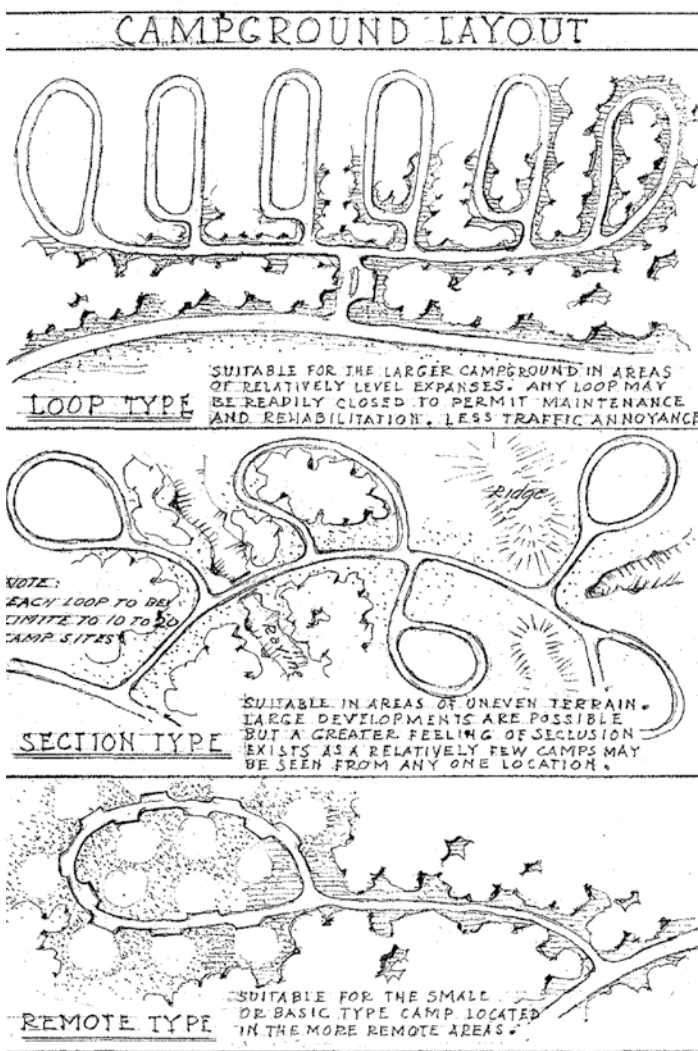 CAMPGROUND LAYOUT
SUITABLE FOR THE LARGER CAMPGROUND IN AREAS
OF RELATIVELY LEVEL EXPANSES. ANY LOOP MAY
BE READILY CLOSED TO PERMIT MAINTENANCE
AND REHABILITATION. LESS TRAFFIC ANNOYANCE
LOOP TYPE
Ridge
NOTE:
EACH LOOP TO BE
LIMITE TO 10 TO 20
CAMP SITES
Ravine
SUITABLE IN AREAS OF UNEVEN TERRAIN.
LARGE DEVELOPMENTS ARE POSSIBLE
BUT A GREATER FEELING OF SECLUSION
EXISTS AS A RELATIVELY FEW CAMPS MAY
BE SEEN FROM ANY ONE LOCATION.
SECTION TYPE
SUITABLE FOR THE SMALL
OR BASIC TYPE CAMP LOCATED
IN THE MORE REMOTE AREAS.
REMOTE TYPE